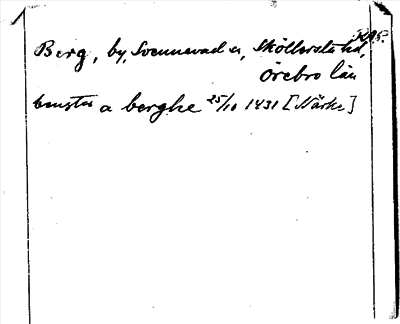 Berg, by, Svennevad sn, Sköllersta hd,
Örebro län
a berghe 25/10 1431 [Närke]